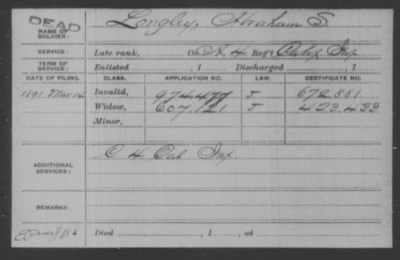 DEAD
NAME OF SOLDIER: Longley, Abraham S.
SERVICE: Late rank, Co. 4 Reg't Inf
TERM OF SERVICE: Enlisted , 1 Discharged , 1
DATE OF FILING. CLASS. APPLICATION NO. LAW. CERTIFICATE NO.
1891 Mar Invalid, 974.477 J 672.881
Widow, 607.121 J 423.433
Minor,
ADDITIONAL SERVICES: C 4 Cal Inf.
REMARKS:
Died , 1 , at